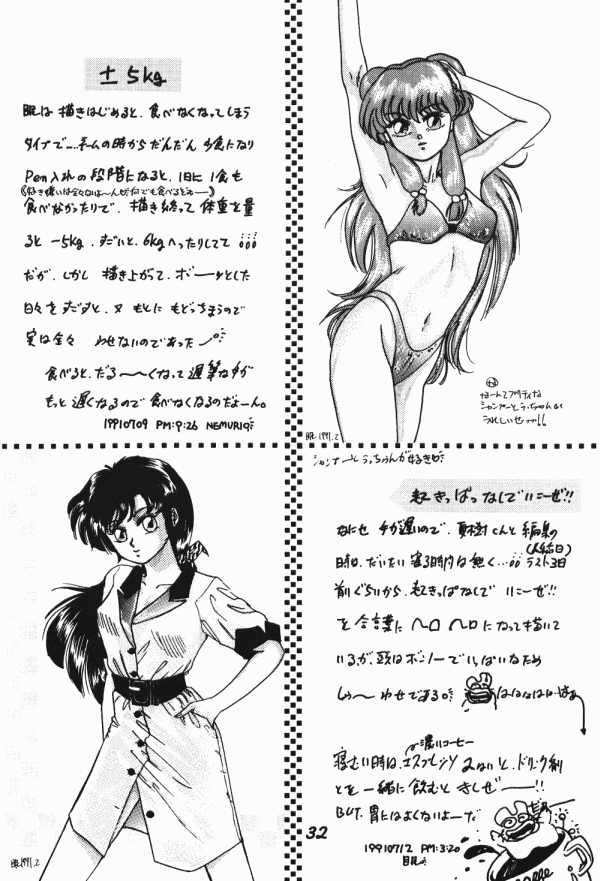 ± 5kg
眠は 描きはじめると、食べなくなってしまう
タイプで…ネームの時からだんだん 少食になり
Pen入れの段階になると、1日に 1食も
(好き嫌いは全々ないよ〜んせだ何でも食べるどおー)
食べなかったりで、描き終って 体重を量
ると −5kg、すごいと、6kgへったりしてて
だが、しかし 描き上がって、ボーッとした
日々をすごすと、又 もとに もどっちまうので
実は全々 やせないのであった
食べると、だる〜〜くなって 遅筆な手が
もっと 遅くなるので 食べなくなるのだよーん。
19910709 PM:9:26 NEMURIQ
なーんてプリティな
シャンプーとうっちゃんが
うれしいぜっ!!
眠 1991.2
シャンプーとうっちゃんが好きだ
起きっぱなしでいこーぜ!!
なにせ 手が遅いので、夏樹くんと 編集の
(〆日)
時は、だいたい 寝る時間は無く… ラスト3日
前ぐらいから、起きっぱなしで いこーぜ!!
を 合言葉に ヘロ ヘロ になって描いて
いるが、頭はボノーでいっぱいなため
しゃ〜わせである。 はははははは
濃いコーヒー
寝むい時は、エスプレッソ のみながら、ドリンク剤
とを 一緒に 飲むと きくぜーー!!
BUT. 胃にはよくないよーだ
19910712 PM:3:20
眠
32
眠 1991.2